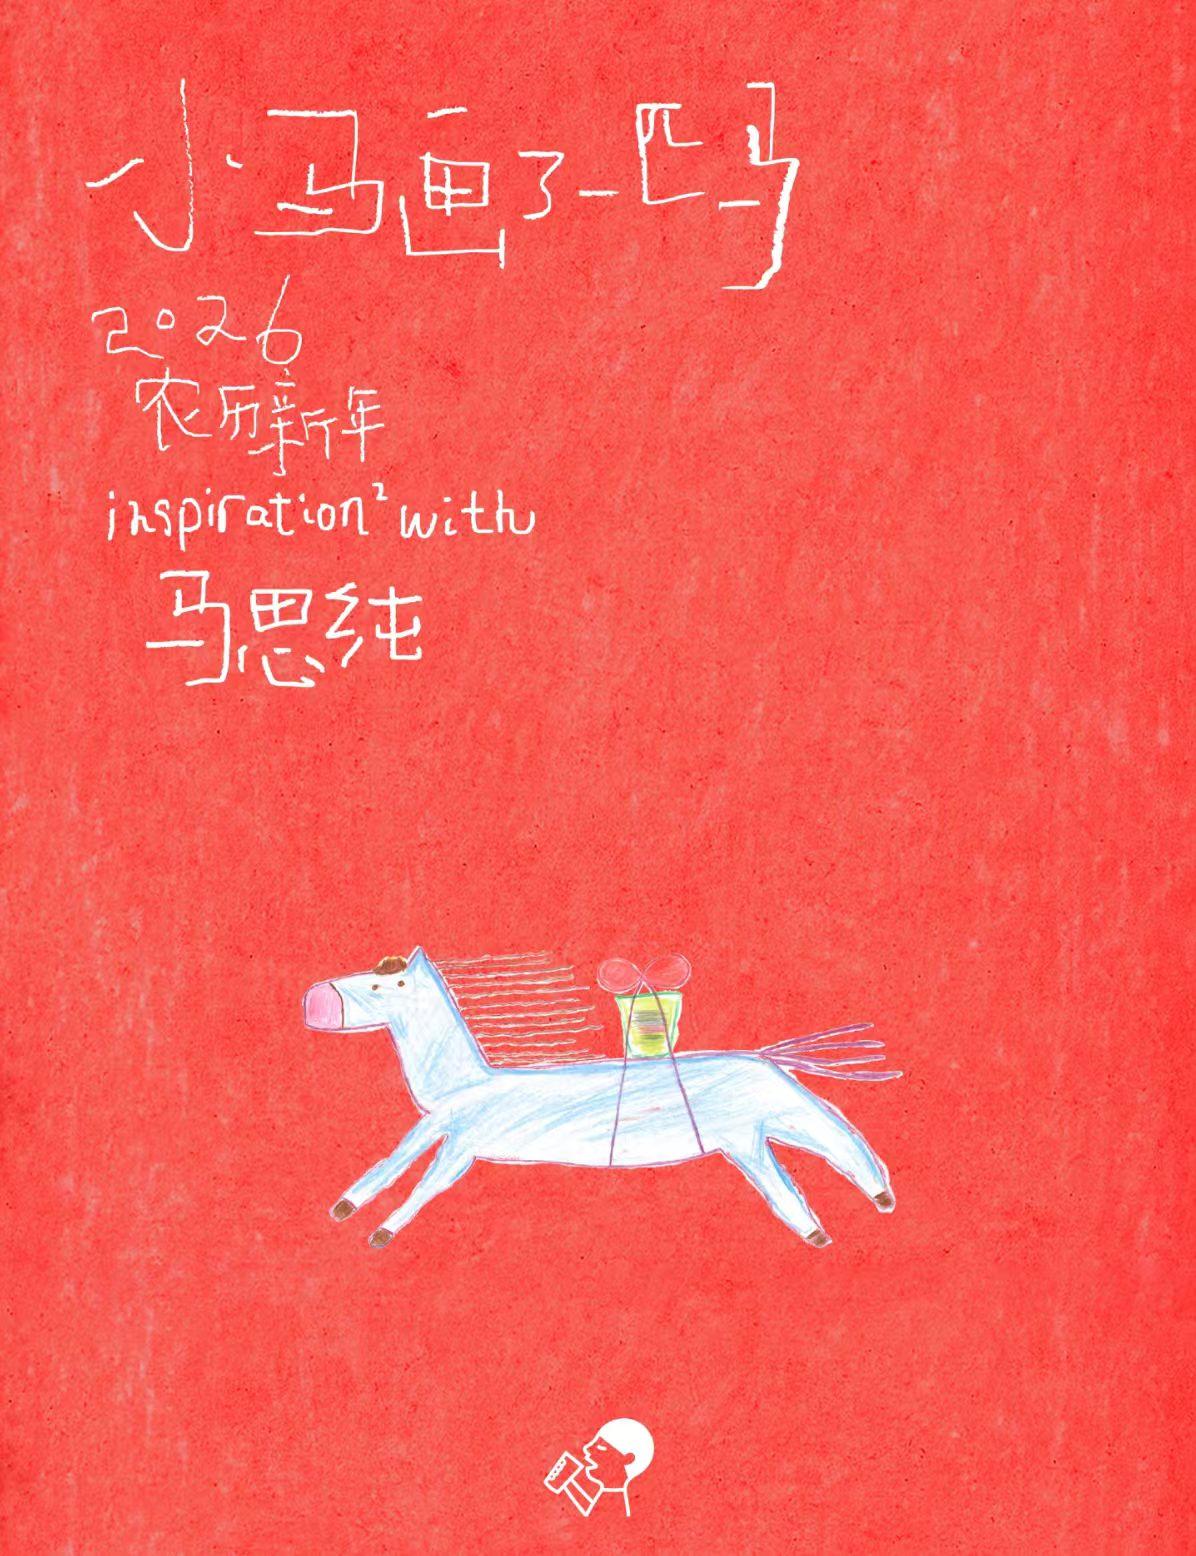 小马画了一匹马
2026
农历新年
inspiration² with
马思纯